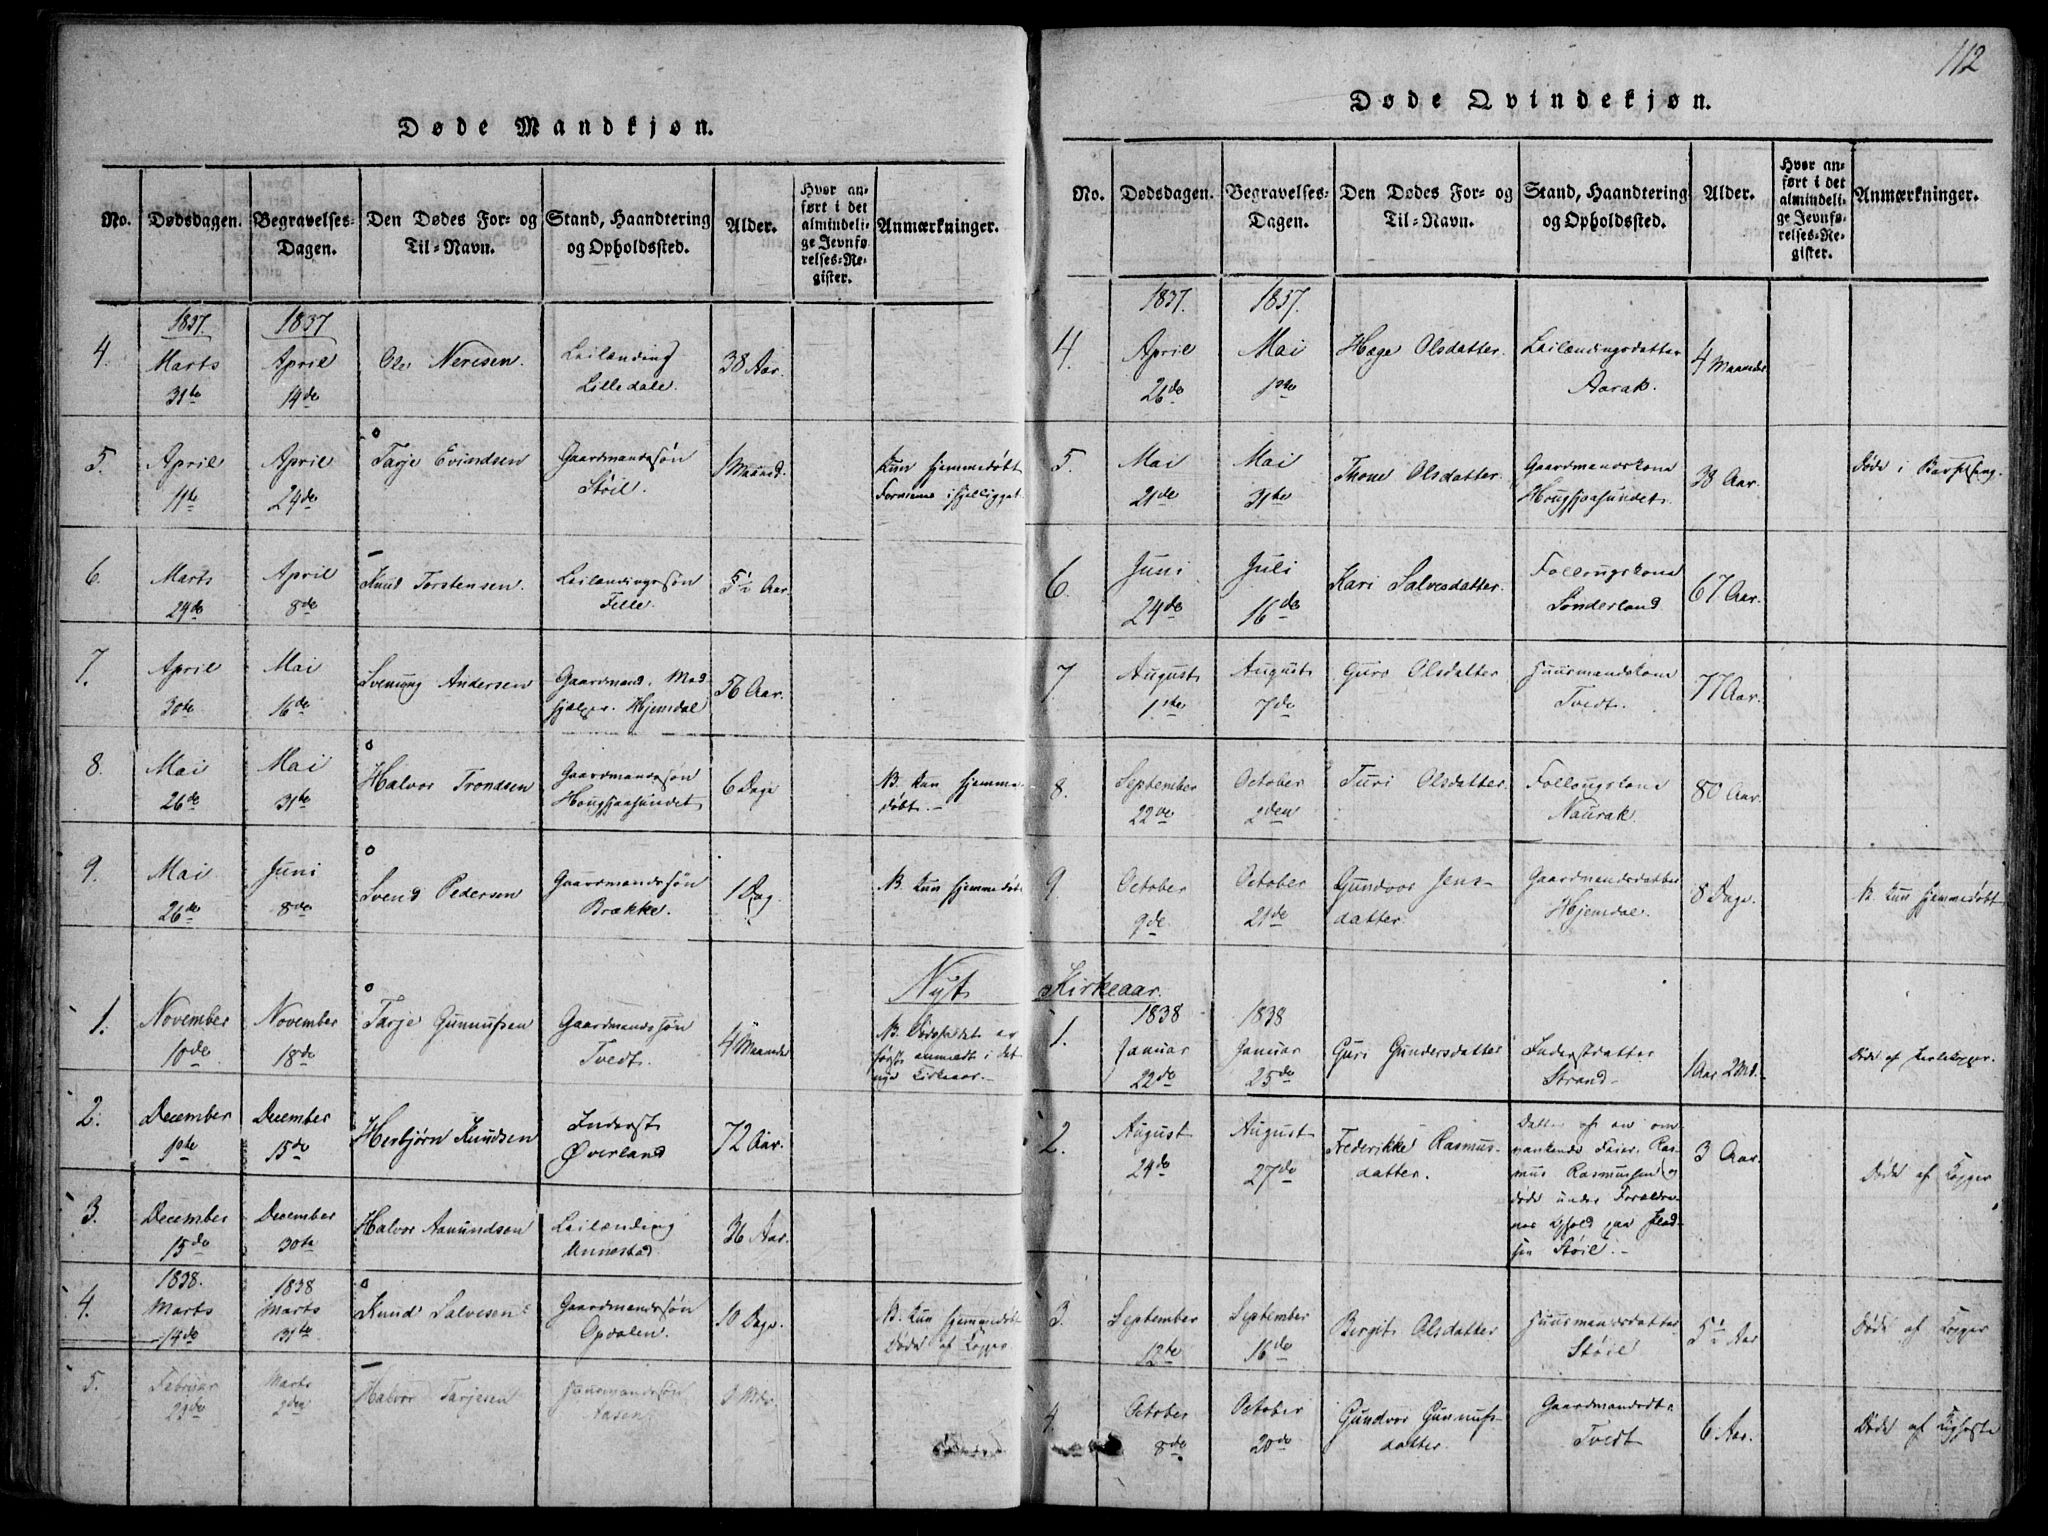 112
Døde Mandkjøn.
No. Dødsdagen. Begravelses-Dagen. Den Dødes For- og Til-Navn. Stand, Haandtering og Opholdssted. Alder. Hvor anført i det almindelige Jevnførelses-Register. Anmærkninger.
4. 1837. Marts 31te 1837 April 14de Ole Neresen. Leilænding Lilledale. 38 Aar.
5. April 11te April 24de Tarje Evindsen Gaardmandssøn Støil. 1 Maaned. Kun hjemmedøbt
6. Marts 29de April 8de Knud Torstensen. Leilændingssøn Felle. 5½ Aar.
7. April 30te Mai 16de Svenung Andersen Gaardmand. Medhjælper. Hjemdal 56 Aar.
8. Mai 26de Mai 31te Halvor Trondsen Gaardmandssøn Hougsjaasundet 6 Dage NB. Kun hjemmedøbt.
9. Mai 26de Juni 8de Svend Pedersen Gaardmandssøn Brække. 1 Dag NB. Kun hjemmedøbt
Nyt Kirkeaar.
1. November 10de November 18de Tarje Gunnufsen Gaardmandssøn Tvedt. 4 Maaneder NB. Dødsfaldet er først anmeldt i det nye Kirkeaar.
2. December 9te December 15de Herbjørn Knudsen Inderst Øverland 72 Aar.
3. December 15de December 30te Halvor Aamundsen Leilænding Unnestad. 36 Aar.
4. 1838. Marts 14de 1838 Marts 31te Knud Salvesen Gaardmandssøn Opdalen. 10 Dage. NB. Kun hjemmedøbt Døde af Kopper.
5. Februar 23de Marts 2den Halvor Tarjesen Huusmandssøn Aasen
Døde Qvindekjøn.
No. Dødsdagen. Begravelses-Dagen. Den Dødes For- og Til-Navn. Stand, Haandtering og Opholdssted. Alder. Hvor anført i det almindelige Jevnførelses-Register. Anmærkninger.
4. 1837. April 26de 1837. Mai 1ste Hæge Olsdatter. Leilændingsdatter Aarak. 4 Maaneder
5. Mai 21de Mai 31te Thone Olsdatter. Gaardmandskone Hougsjaasundet. 38 Aar. Døde i Barselseng.
6. Juni 24de Juli 16de Kari Salvesdatter. Follougskone Sønderland 67 Aar.
7 August 1ste August 7de Guro Olsdatter Huusmandskone Tvedt. 77 Aar.
8. September 22de October 2den Turi Olsdatter. Follougskone Naurak. 80 Aar.
9 October 9de October 21de Gundvor Jensdatter. Gaardmandsdatter Hjemdal. 8 Dage. NB. Kun hjemmedøbt
1. 1838 Januar 22de 1838 Januar 25de Guri Gundersdatter Inderstdatter Strand 1 Aar 2 Md. Døde af
2. August 24de August 27de Frederikke Rasmusdatter. Datter af en omvankende Rasmus Rasmussen døde under Forældrenes Ophold paa Støil. 3 Aar. Døde af Kopper
3. September 12te September 16de Birgit Olsdatter Huusmandsdatter Støil 5½ Aar Døde af Kopper
4. October 8de October 20de Gundvor Gunnufsdatter. Gaardmandsdt. Tvedt 6 Aar. Døde af